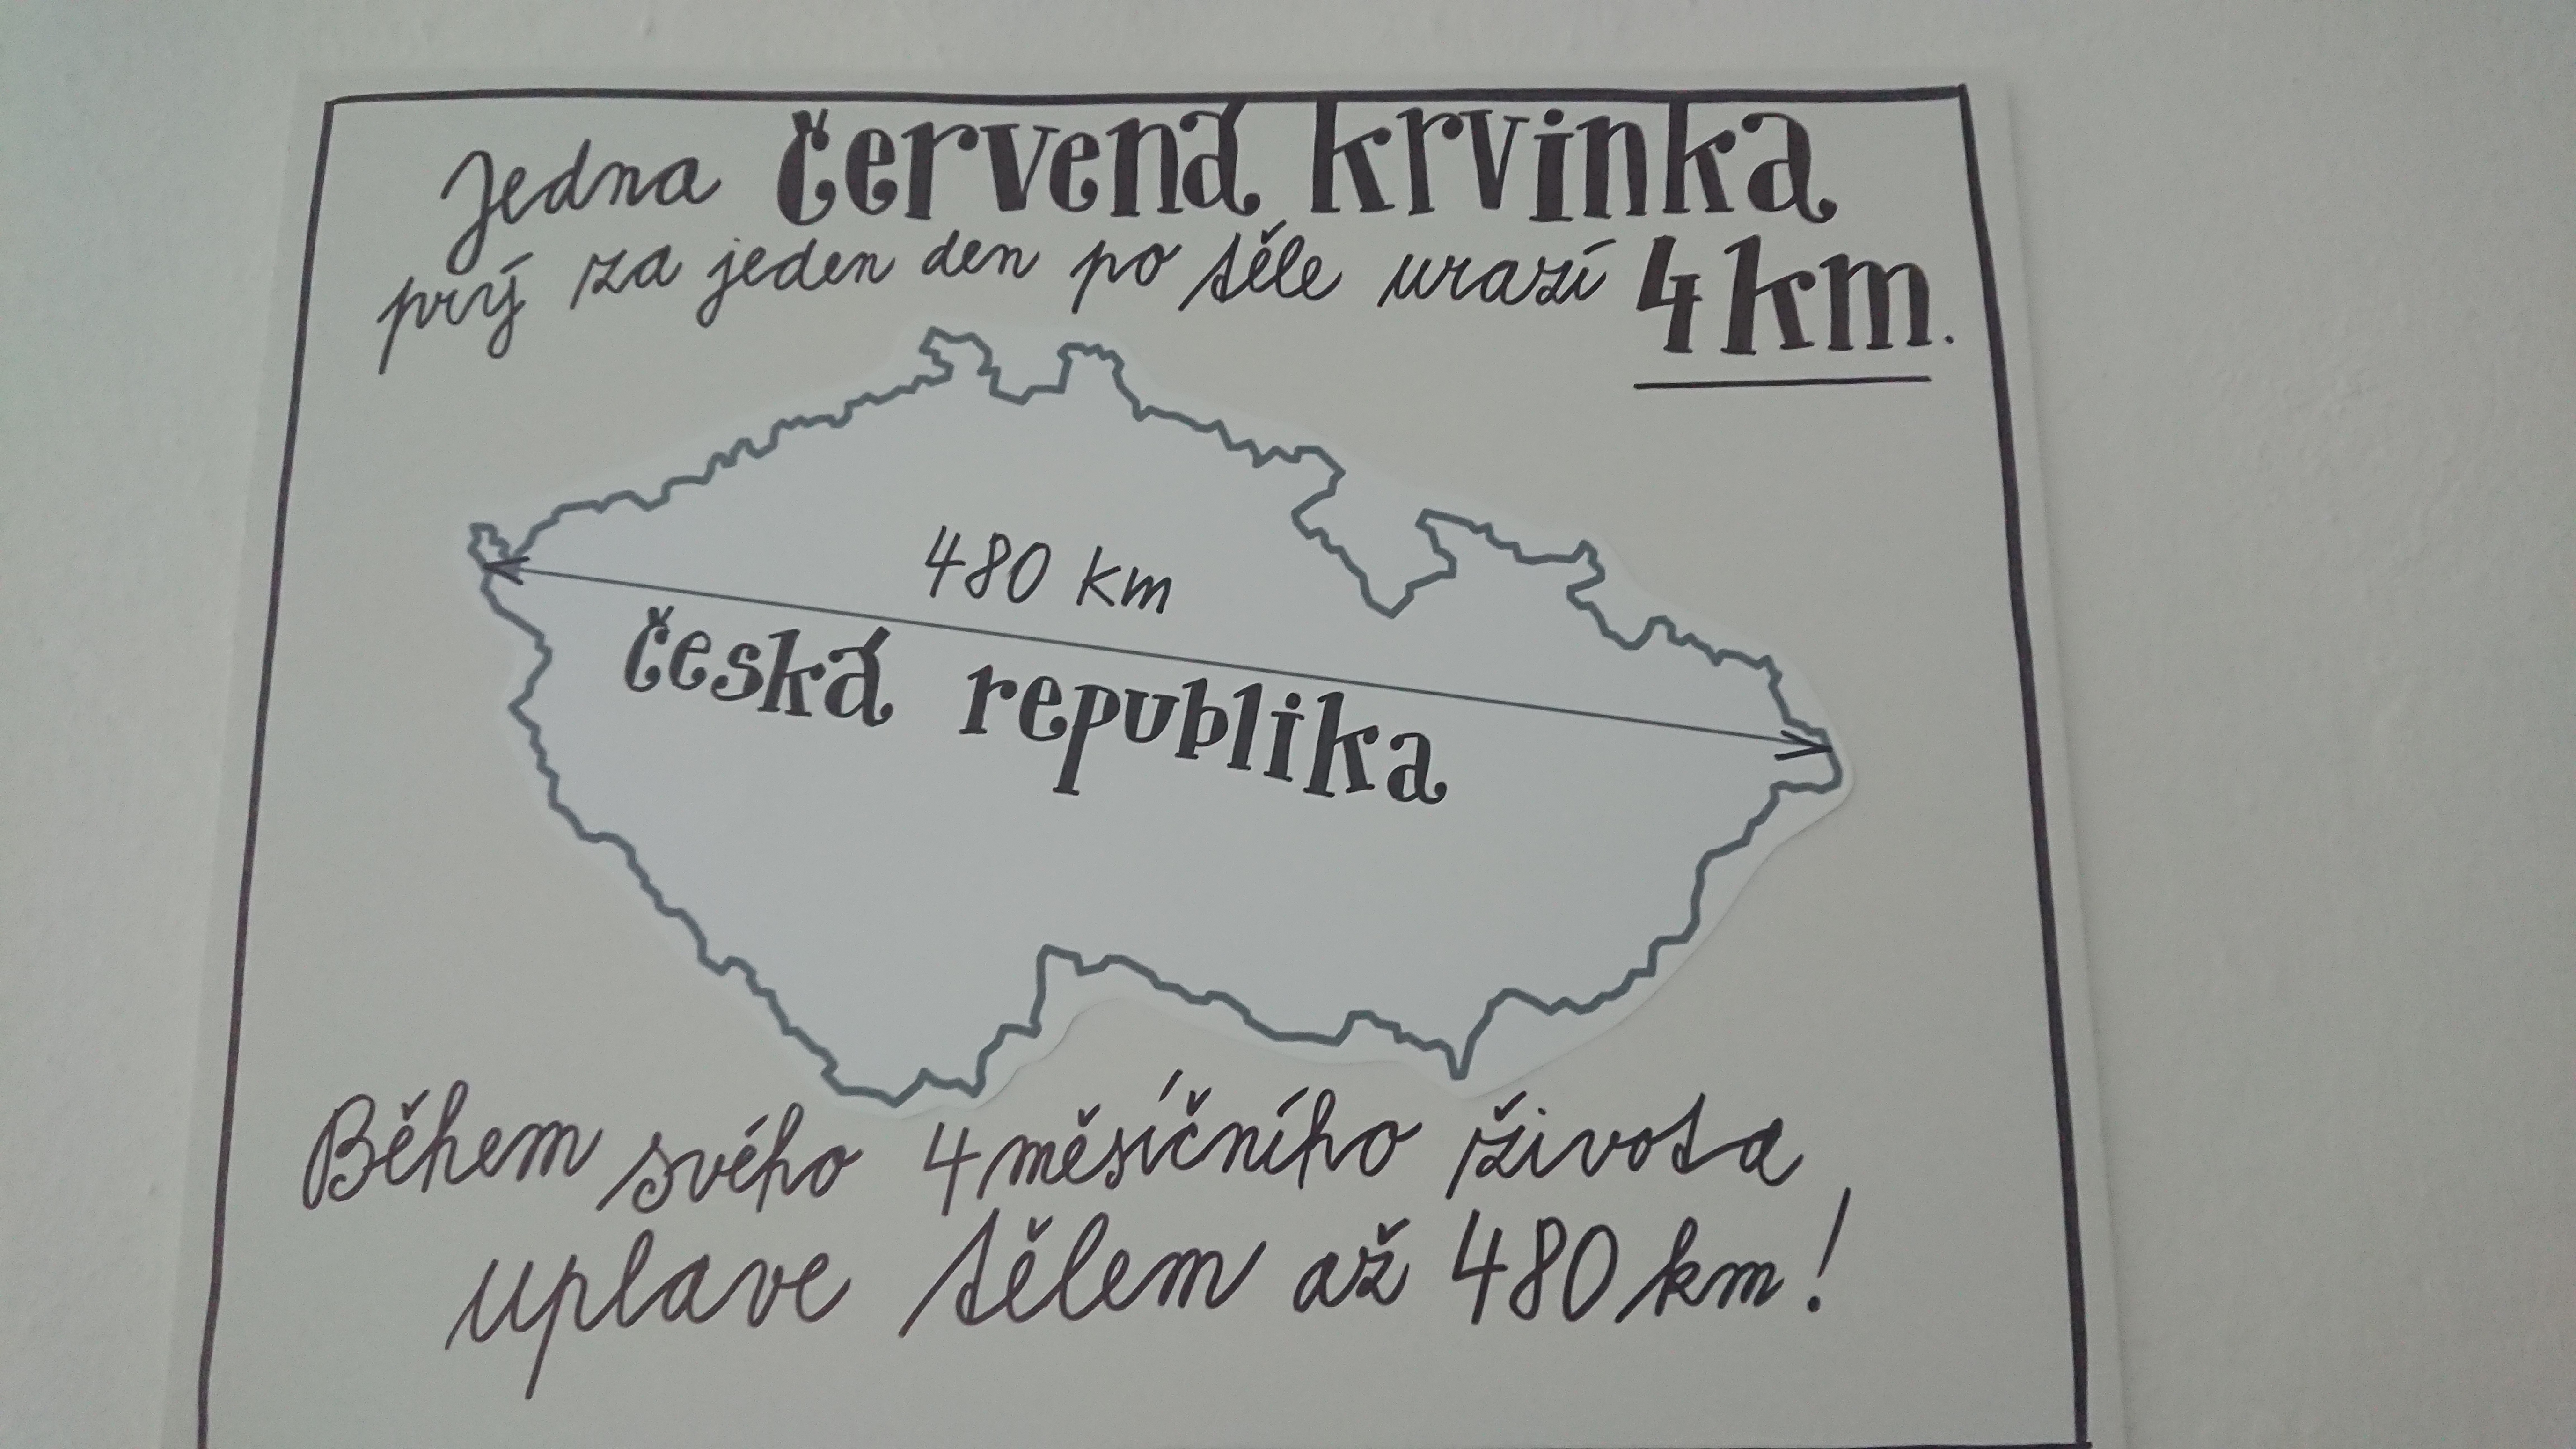 Jedna červená krvinka
prý za jeden den po těle urazí 4 km.
480 km
česká republika
Během svého 4měsíčního života
uplave tělem až 480 km!